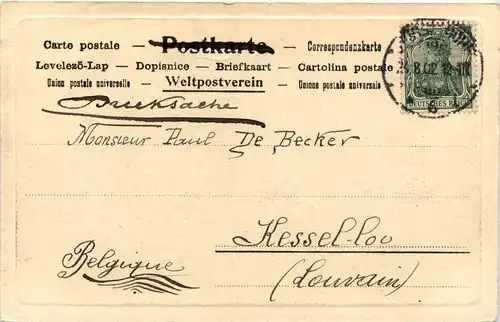 Carte postale — Postkarte — Correspondenzkarte
Levelezö-Lap — Dopisnice — Briefkaart — Cartolina postale
Union postale universelle — Weltpostverein — Unione postale universale
Drucksache
Monsieur Paul De Becker
Kessel-loo
(Louvain)
Belgique
DEUTSCHES REICH